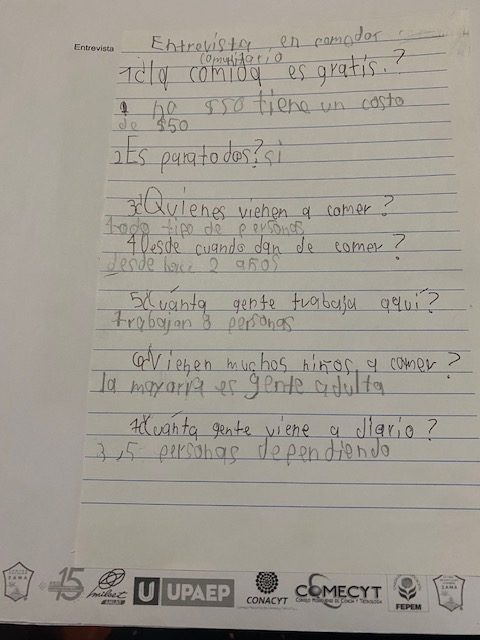 Entrevista
Entrevista en comedor
comunitario
1¿la comida es gratis.?
no $50 tiene un costo
de $50
2Es para todos? si
3¿Quienes vienen a comer?
todo tipo de personas
4Desde cuando dan de comer?
desde hace 2 años
5¿Cuánta gente trabaja aquí?
trabajan 3 personas
6¿Vienen muchos niños a comer?
la mayoria es gente adulta
7¿Cuánta gente viene a diario?
3,5 personas dependiendo
15
milset
U UPAEP
CONACYT
COMECYT
FEPEM